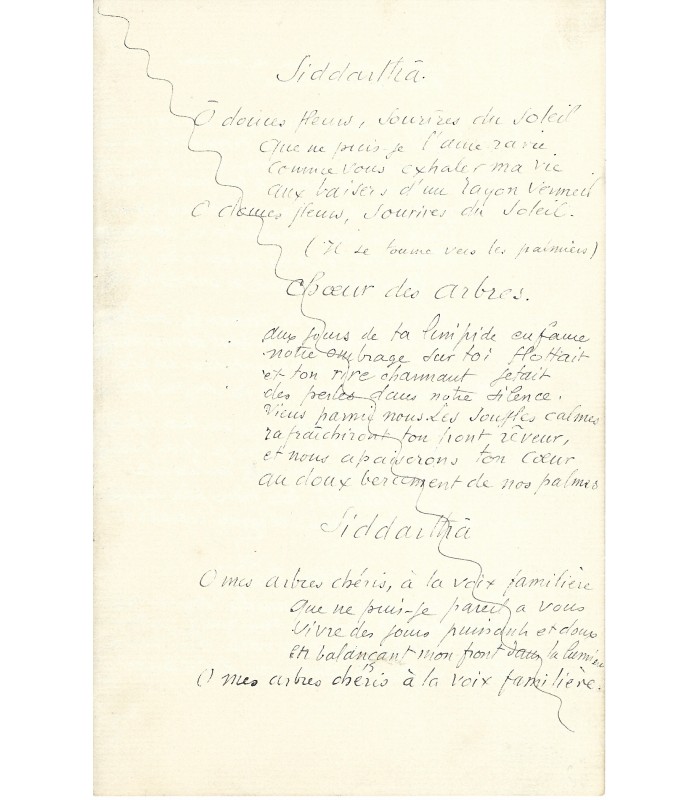 Siddarthā.
Ô douces fleurs, sourires du soleil
Que ne puis-je l'ame ravie
comme vous exhaler ma vie
aux baisers d'un rayon vermeil
O douces fleurs, sourires du soleil.
(Il se tourne vers les palmiers)
Chœur des arbres.
aux jours de ta limpide enfance
notre ombrage sur toi flottait
et ton rire charmant jetait
des perles dans notre silence.
Viens parmi nous. Les souffles calmes
rafraîchiront ton front rêveur,
et nous apaiserons ton cœur
au doux bercement de nos palmes
Siddarthā
O mes arbres chéris, à la voix familière
Que ne puis-je pareil a vous
vivre des jours puissants et doux
En balançant mon front dans la lumière
O mes arbres chéris à la voix familière.